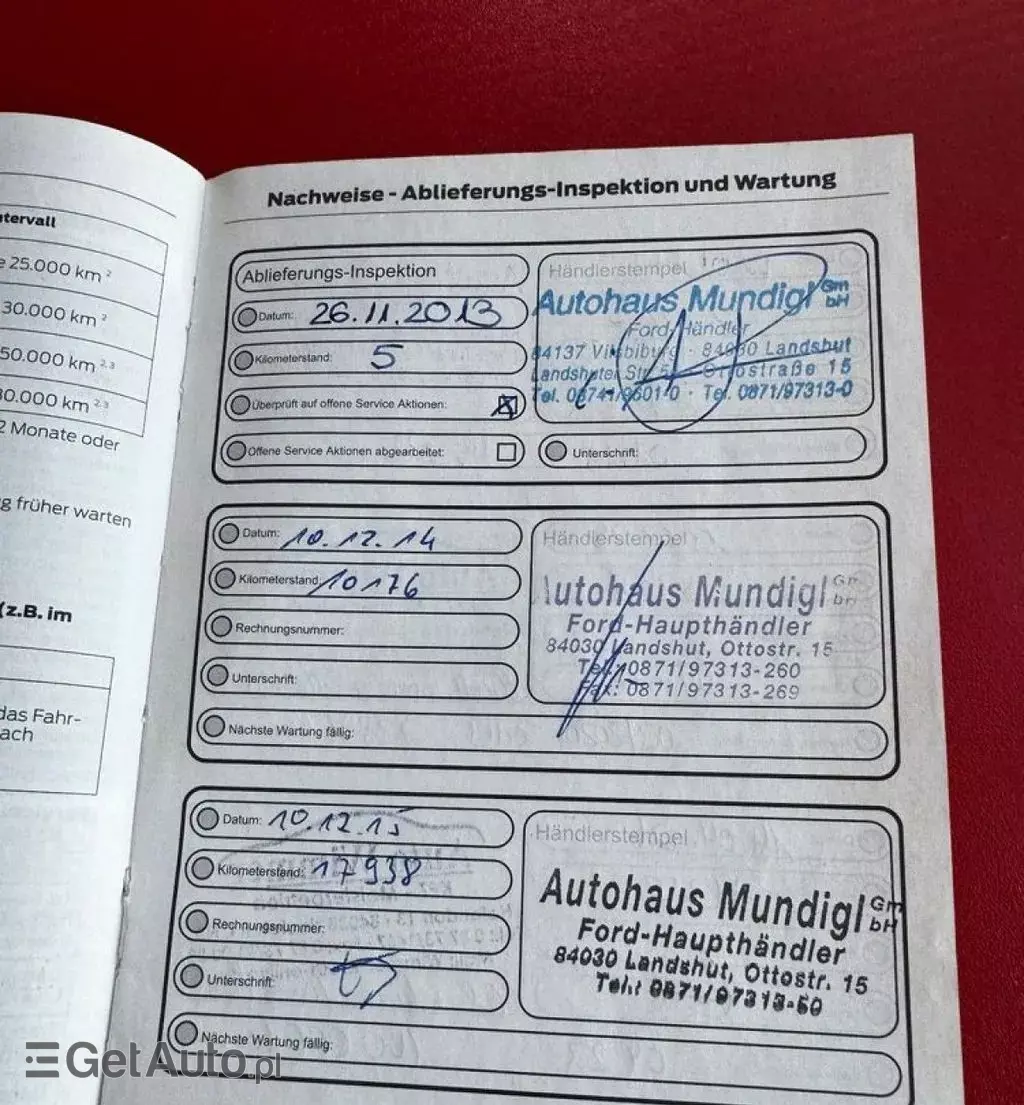 tervall
25.000 km 2
30.000 km 2
50.000 km 2,3
0.000 km 2,3
2 Monate oder
g früher warten
(z.B. im
das Fahr-
ach
Nachweise - Ablieferungs-Inspektion und Wartung
Ablieferungs-Inspektion
Datum: 26.11.2013
Kilometerstand: 5
Überprüft auf offene Service Aktionen:
Offene Service Aktionen abgearbeitet:
Händlerstempel
Autohaus Mundigl GmbH
Ford-Händler
84137 Vilsbiburg · 84030 Landshut
Landshuter Str. Ottostraße 15
Tel. 08741/96010 · Tel. 0871/97313-0
Unterschrift:
Datum: 10.12.14
Kilometerstand: 10176
Rechnungsnummer:
Unterschrift:
Nächste Wartung fällig:
Händlerstempel
Autohaus Mundigl GmbH
Ford-Haupthändler
84030 Landshut, Ottostr. 15
Tel.: 0871/97313-260
Fax: 0871/97313-269
Datum: 10.12.15
Kilometerstand: 17938
Rechnungsnummer:
Unterschrift:
Nächste Wartung fällig:
Händlerstempel
Autohaus Mundigl GmbH
Ford-Haupthändler
84030 Landshut, Ottostr. 15
Tel.: 0871/97313-60
GetAuto.pl